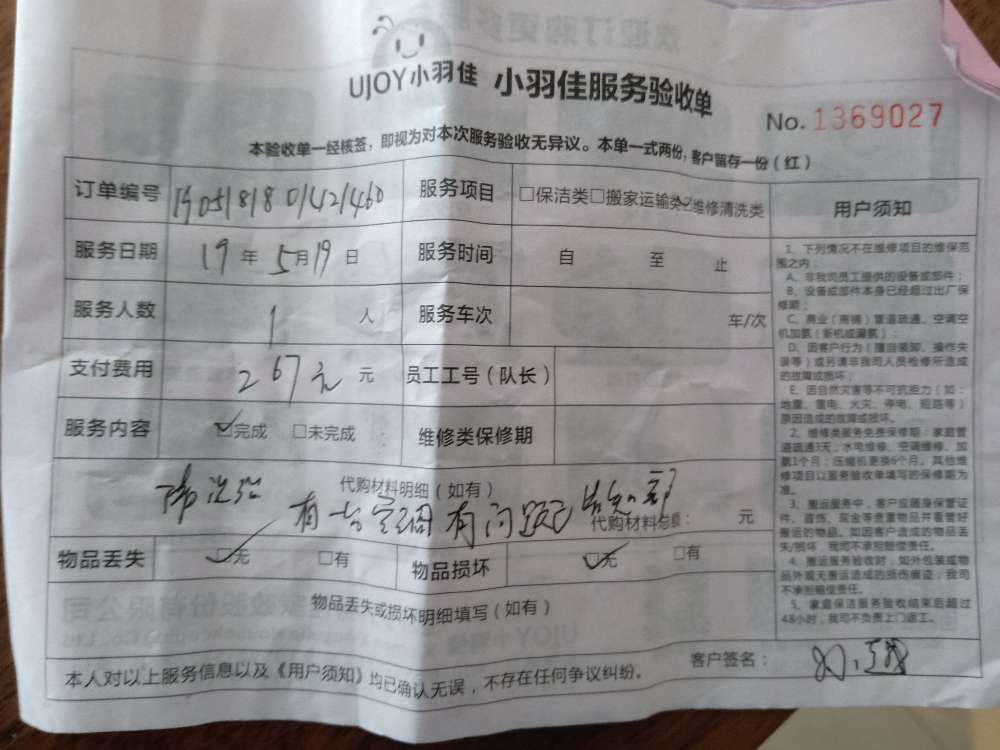 UJOY小羽佳 小羽佳服务验收单
No. 1369027
本验收单一经核签，即视为对本次服务验收无异议。本单一式两份，客户留存一份（红）
订单编号 服务项目 □保洁类□搬家运输类☑维修清洗类
服务日期 19年5月19日 服务时间 自 至 止
服务人数 1 人 服务车次 车/次
支付费用 267元 元 员工工号（队长）
服务内容 ☑完成 □未完成 维修类保修期
代购材料明细（如有）
有台空调有问题已告知
代购材料总额： 元
物品丢失 ☑无 □有 物品损坏 ☑无 □有
物品丢失或损坏明细填写（如有）
本人对以上服务信息以及《用户须知》均已确认无误，不存在任何争议纠纷。
客户签名：
用户须知
1、下列情况不在维修项目的维保范
围之内：
A、非我司员工提供的设备或部件；
B、设备或部件本身已经超过出厂保
修期；
C、商业（商铺）管道疏通、空调空
机加氨（新机或漏氨）；
D、因客户行为（擅自装卸、操作失
误等）或另请非我司人员检修所造成
的故障或损坏；
E、因自然灾害等不可抗拒力（如：
地震、雷电、火灾、停电、短路等）
原因造成的故障或损坏。
2、维修类服务免费保修期：家庭管
道疏通3天；水电维修、空调维修、加
氨1个月；压缩机更换6个月。其他维
修项目以服务验收单填写的保修期为
准。
3、搬运服务中，客户应随身保管证
件、首饰、现金等贵重物品并看管好
搬运的物品。如因客户造成的物品丢
失/损坏，我司不承担赔偿责任。
4、搬运服务验收时，如外包装或物
品外观无搬运造成的损伤痕迹，我司
不承担赔偿责任。
5、家庭保洁服务验收结束后超过
48小时，我司不负责上门返工。